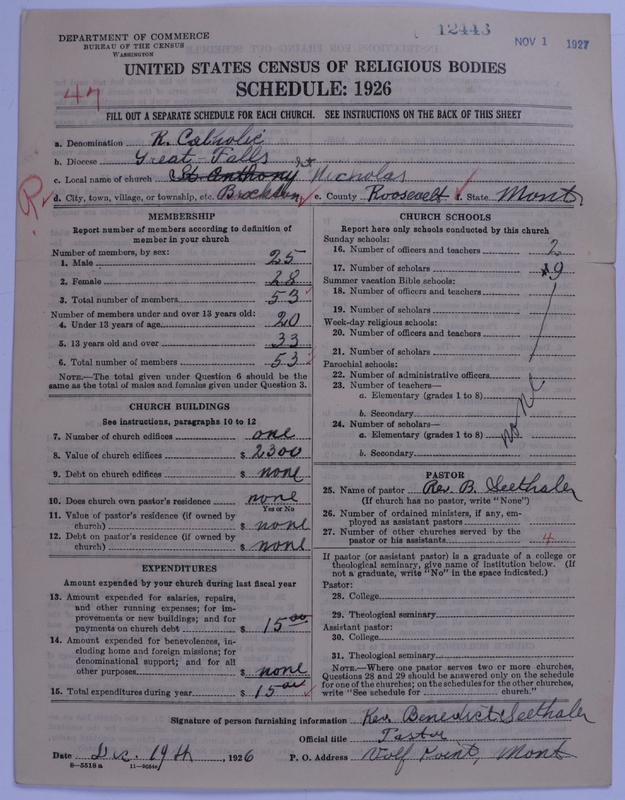 DEPARTMENT OF COMMERCE
BUREAU OF THE CENSUS
WASHINGTON
12443
NOV 1 1927
UNITED STATES CENSUS OF RELIGIOUS BODIES
SCHEDULE: 1926
47
FILL OUT A SEPARATE SCHEDULE FOR EACH CHURCH. SEE INSTRUCTIONS ON THE BACK OF THIS SHEET
a. Denomination R. Catholic
b. Diocese Great Falls
c. Local name of church St. Anthony St Nicholas
R
d. City, town, village, or township, etc. Brockton e. County Roosevelt f. State Mont.
MEMBERSHIP
Report number of members according to definition of
member in your church
Number of members, by sex:
1. Male 25
2. Female 28
3. Total number of members 53
Number of members under and over 13 years old:
4. Under 13 years of age 20
5. 13 years old and over 33
6. Total number of members 53
NOTE.—The total given under Question 6 should be the
same as the total of males and females given under Question 3.
CHURCH BUILDINGS
See instructions, paragraphs 10 to 12
7. Number of church edifices one
8. Value of church edifices $ 2300
9. Debt on church edifices $ none
10. Does church own pastor's residence none
Yes or No
11. Value of pastor's residence (if owned by
church) $ none
12. Debt on pastor's residence (if owned by
church) $ none
EXPENDITURES
Amount expended by your church during last fiscal year
13. Amount expended for salaries, repairs,
and other running expenses; for im-
provements or new buildings; and for
payments on church debt $ 15 00
14. Amount expended for benevolences, in-
cluding home and foreign missions; for
denominational support; and for all
other purposes $ none
15. Total expenditures during year $ 15 00
CHURCH SCHOOLS
Report here only schools conducted by this church
Sunday schools:
16. Number of officers and teachers 2
17. Number of scholars 9
Summer vacation Bible schools:
18. Number of officers and teachers
19. Number of scholars
Week-day religious schools:
20. Number of officers and teachers
21. Number of scholars
Parochial schools:
22. Number of administrative officers
23. Number of teachers—
a. Elementary (grades 1 to 8)
b. Secondary
24. Number of scholars—
a. Elementary (grades 1 to 8)
b. Secondary
none
PASTOR
25. Name of pastor Rev. B. Seethaler
(If church has no pastor, write "None")
26. Number of ordained ministers, if any, em-
ployed as assistant pastors
27. Number of other churches served by the
pastor or his assistants 4
If pastor (or assistant pastor) is a graduate of a college or
theological seminary, give name of institution below. (If
not a graduate, write "No" in the space indicated.)
Pastor:
28. College
29. Theological seminary
Assistant pastor:
30. College
31. Theological seminary
NOTE.—Where one pastor serves two or more churches,
Questions 28 and 29 should be answered only on the schedule
for one of the churches; on the schedules for the other churches,
write "See schedule for church."
Signature of person furnishing information Rev. Benedict Seethaler
Official title Pastor
Date Dec. 19th, 1926 P. O. Address Wolf Point, Mont
8—5518 a